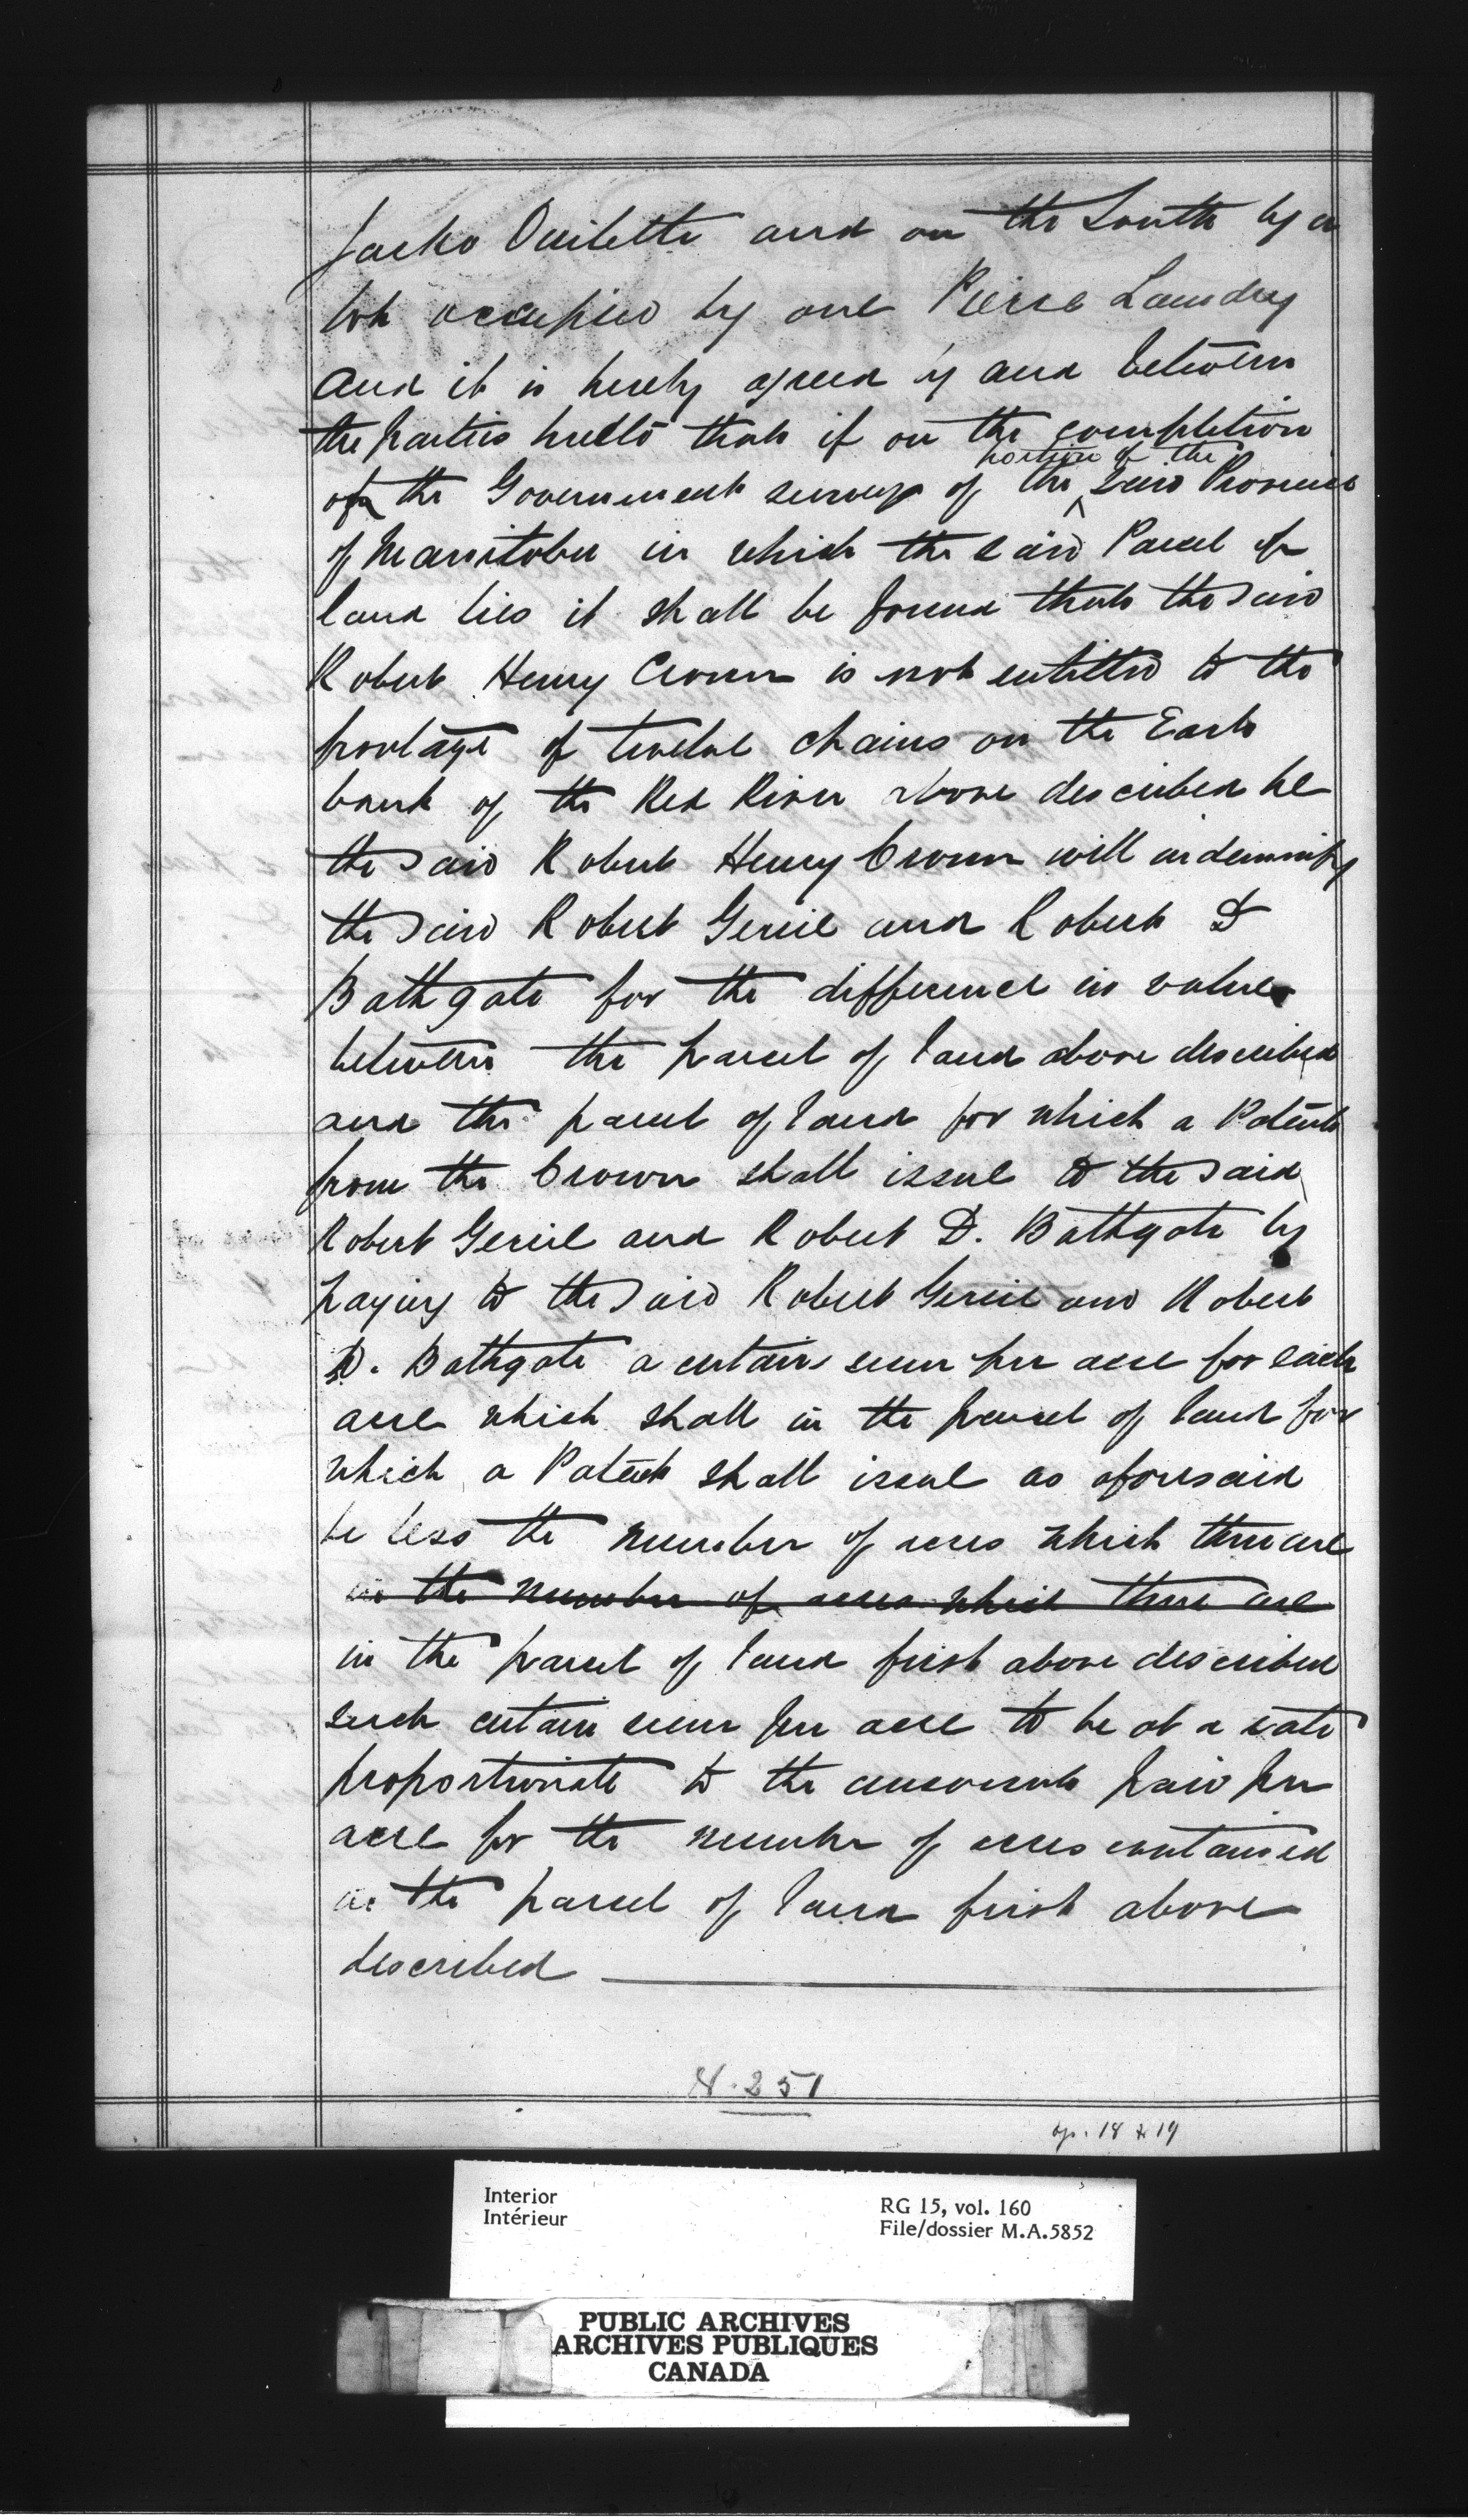 Jacko Ouilette and on the South by a
lot occupied by one Pierre Laundry
and it is hereby agreed by and between
the parties hereto that if on the completion
portion of the
of the Government survey of the ^ said Province
of Manitoba in which the said Parcel of
land lies it shall be found that the said
Robert Henry Cronn is not entitled to the
frontage of twelve chains on the East
bank of the Red River above described he
the said Robert Henry Cronn will indemnify
the said Robert Gerrie and Robert D
Bathgate for the difference in value
between the parcel of land above described
and the parcel of land for which a Patent
from the Crown shall issue to the said
Robert Gerrie and Robert D. Bathgate by
paying to the said Robert Gerrie and Robert
D. Bathgate a certain sum per acre for each
acre which shall in the parcel of land for
which a Patent shall issue as aforesaid
be less the number of acres which there are
in the number of acres which there are
in the parcel of land first above described
such certain sum per acre to be at a rate
proportionate to the amount paid per
acre for the number of acres contained
in the parcel of land first above
described
251
18 & 19
Interior
Intérieur
RG 15, vol. 160
File/dossier M.A.5852
PUBLIC ARCHIVES
ARCHIVES PUBLIQUES
CANADA